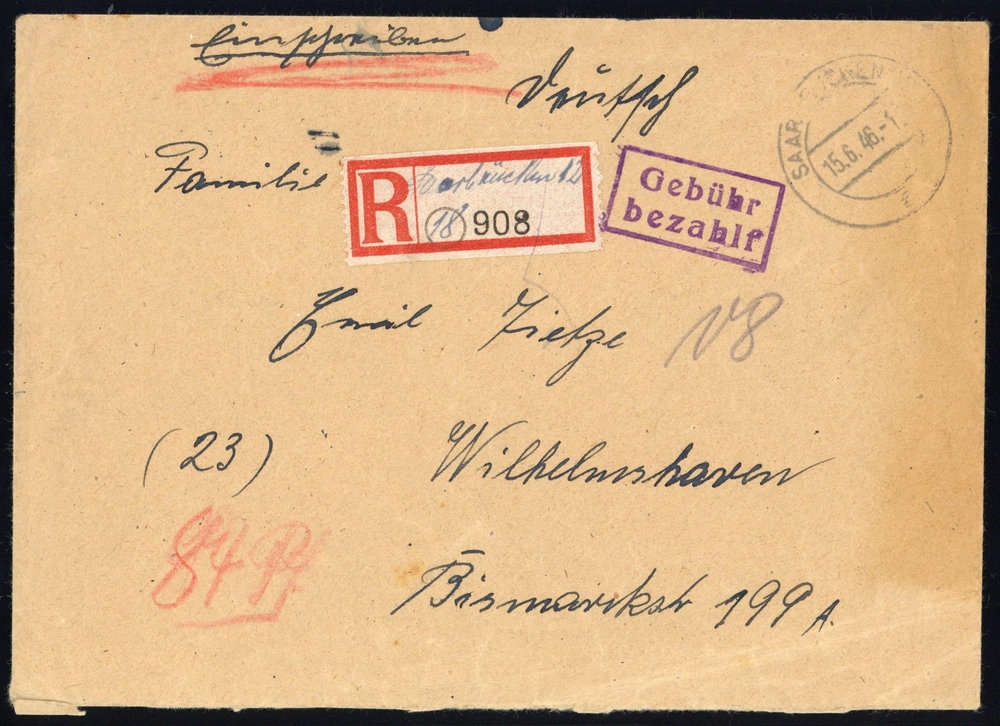 Einschreiben
Deutsch
SAARBRÜCKEN
15.6.46.-1
Familie
R Saarbrücken 12
18 908
Gebühr
bezahlt
Emil Tietze
V8
(23) Wilhelmshaven
84 Pf
Bismarckstr 199 A.